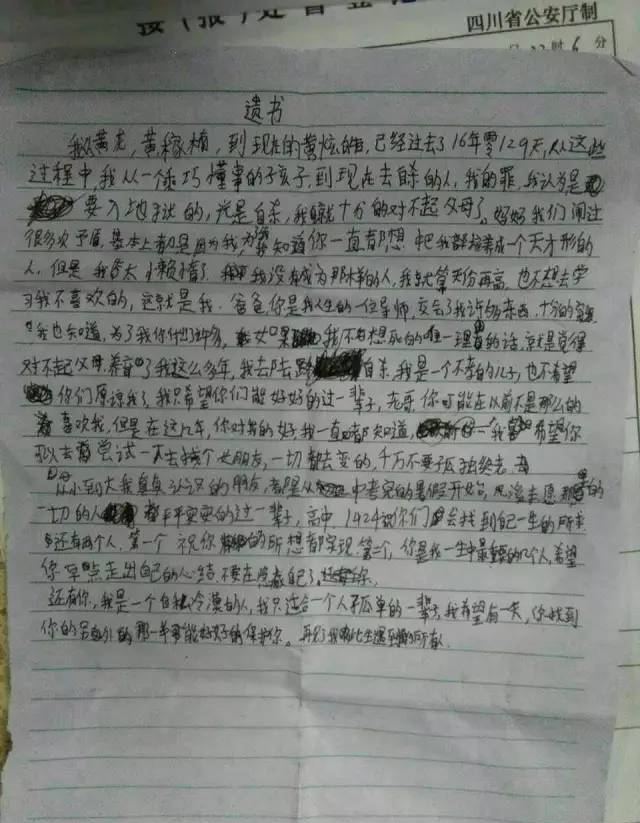 接（报）处警登记
四川省公安厅制
时6分
遗书
黄龙，黄稼楠，到现在的黄炫皓，已经过去了16年零129天，从这些
过程中，我从一个乖巧懂事的子孩子，到现在去自杀的人，我的罪，我认为是
要入地狱的，光是自杀，我就十分的对不起父母了。妈妈我们闹过
很多次矛盾，基本上都是因为我，知道你一直都想把我培养成一个天才形的
人，但是我太懒惰了，我没有成为那样的人，我就算天份再高，也不想去学
习我不喜欢的，这就是我。爸爸，你是我人生的一位导师，交会了我许多东西，十分的
我也知道，为了我你付出许多，如果我不想死的唯一理由的话，就是觉得
对不起父母，养育了我这么多年，我去自杀，我是一个不孝的儿子，也不希望
你们原谅我了，我只希望你们能好好的过一辈子，老哥，你可能在以前不是那么的
喜欢我，但是在这几年，你对我的好我一直都知道，我希望你
可以去尝试一下去找个女朋友，一切都会变的，千万不要孤独终老，
从小到大我真真认识的朋友，都是从中考完的暑假开始，愿的
一切的人都平平安安的过一辈子，高中，1424祝你们会找到自己一生的所求
还有两个人，第一个祝你的所想都实现，第二个，你是我一生中最重要的几个人，希望
你早点走出自己的心结，不要在怪自己了，
还有你，我是一个自私冷漠的人，我只适合一个人孤单的一辈子，我希望有一天，你找到
你的另外的那一半可能好好的保护你。再见了我此生遇到的所有人